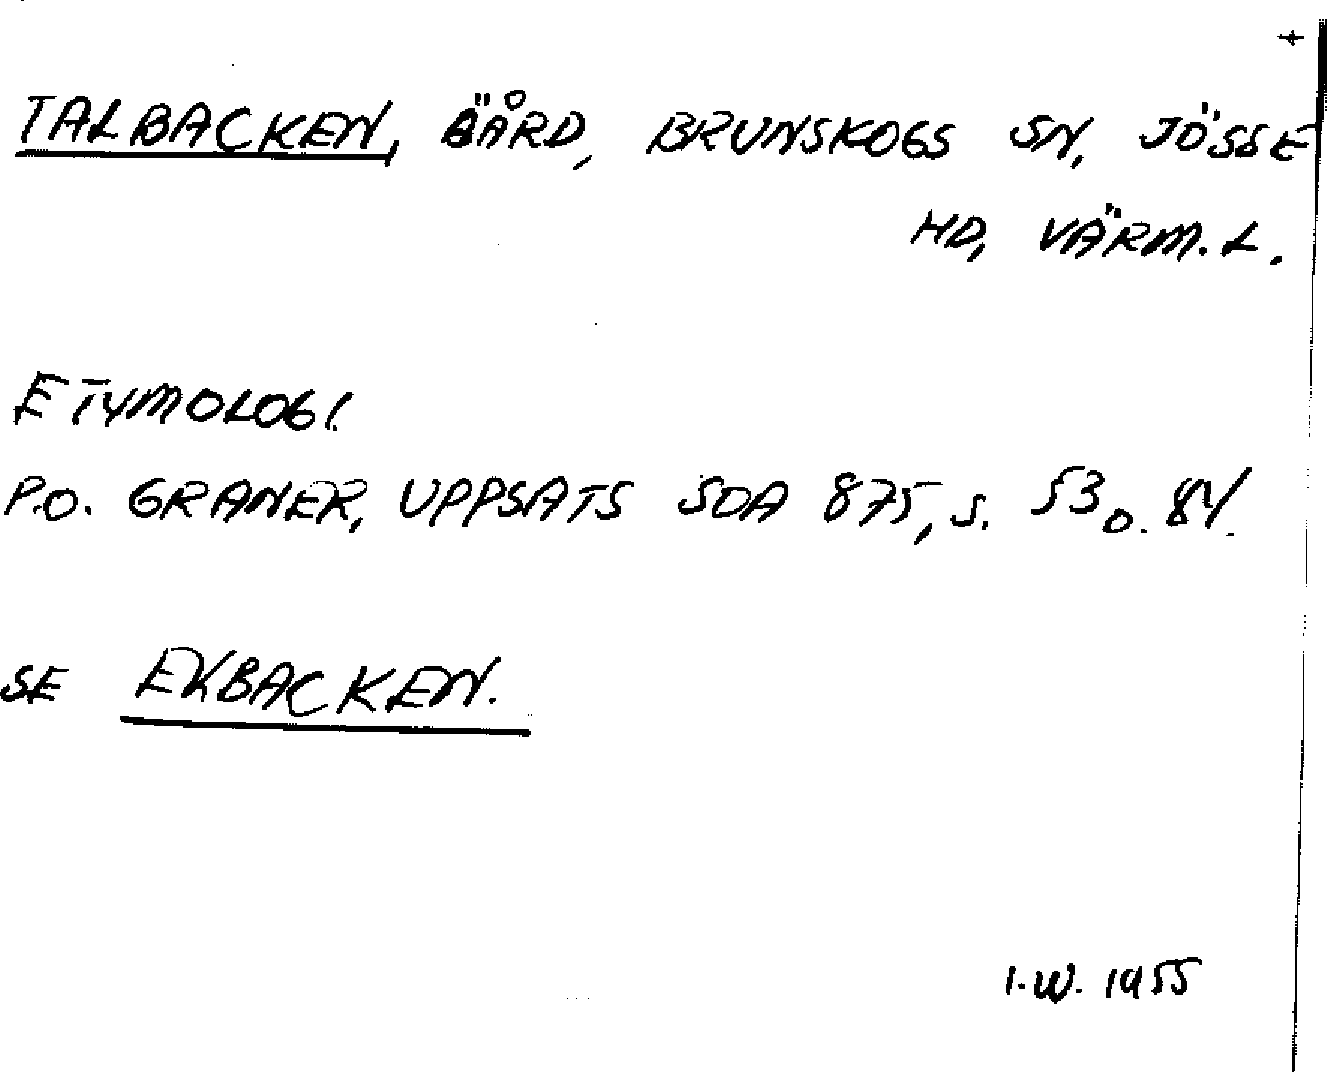 TALBACKEN, ÄÅRD, BRUNSKOGS SN, JÖSSE
HD, VÄRM. L.
ETYMOLOGI.
P.O. GRANER, UPPSATS SOA 875, S. 53 o. 84.
SE EKBACKEN.
I.W. 1955